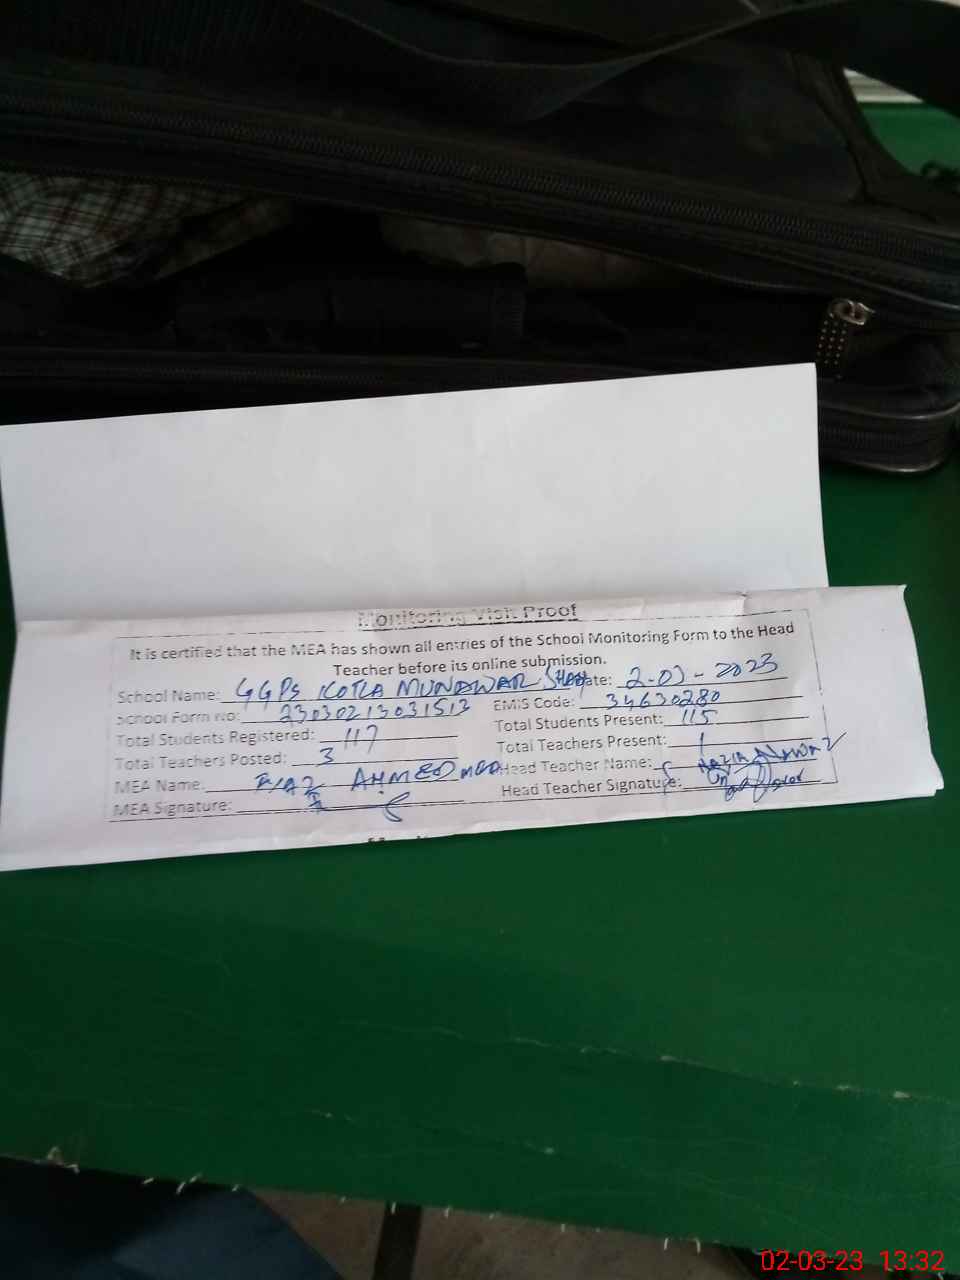 Monitoring Visit Proof
It is certified that the MEA has shown all entries of the School Monitoring Form to the Head
Teacher before its online submission.
School Name: GGPS KOTLA MUNAWAR SHAH Date: 2-03-2023
School Form No: 23030213031513 EMIS Code: 34630280
Total Students Registered: 117 Total Students Present: 115
Total Teachers Posted: 3 Total Teachers Present: 1
MEA Name: AHMED Head Teacher Name: NAZIA NAWAZ
MEA Signature: Head Teacher Signature:
02-03-23 13:32